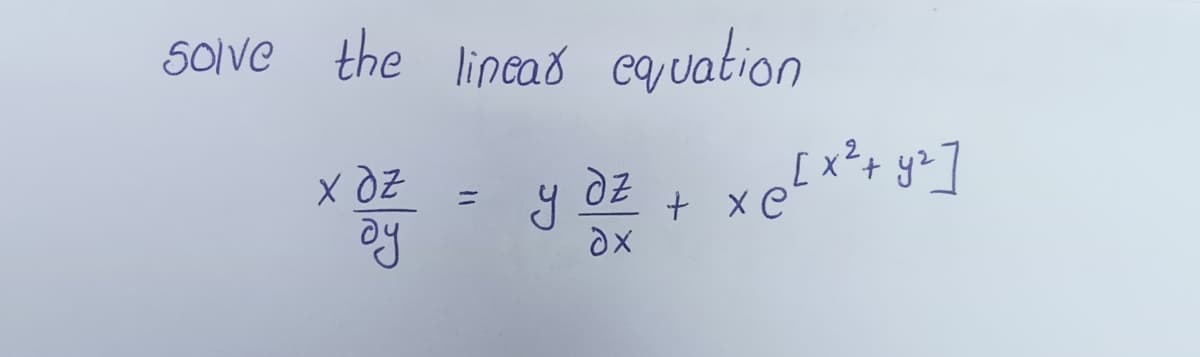 solve the linear equation
x ∂z/∂y = y ∂z/∂x + x e^[x²+ y²]